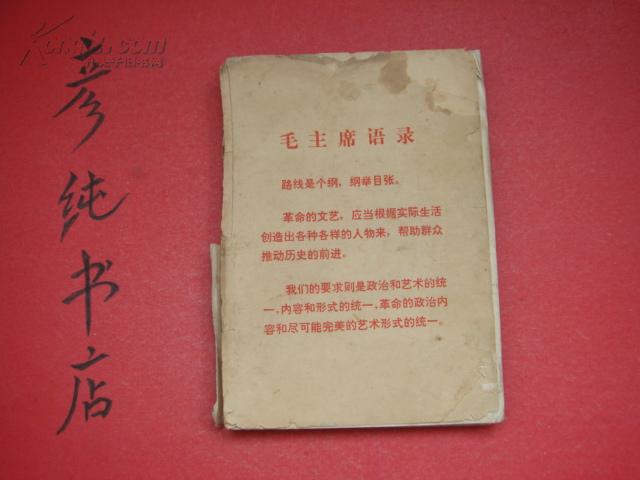 彦纯书店
毛主席语录
路线是个纲，纲举目张。
革命的文艺，应当根据实际生活
创造出各种各样的人物来，帮助群众
推动历史的前进。
我们的要求则是政治和艺术的统
一，内容和形式的统一，革命的政治内
容和尽可能完美的艺术形式的统一。